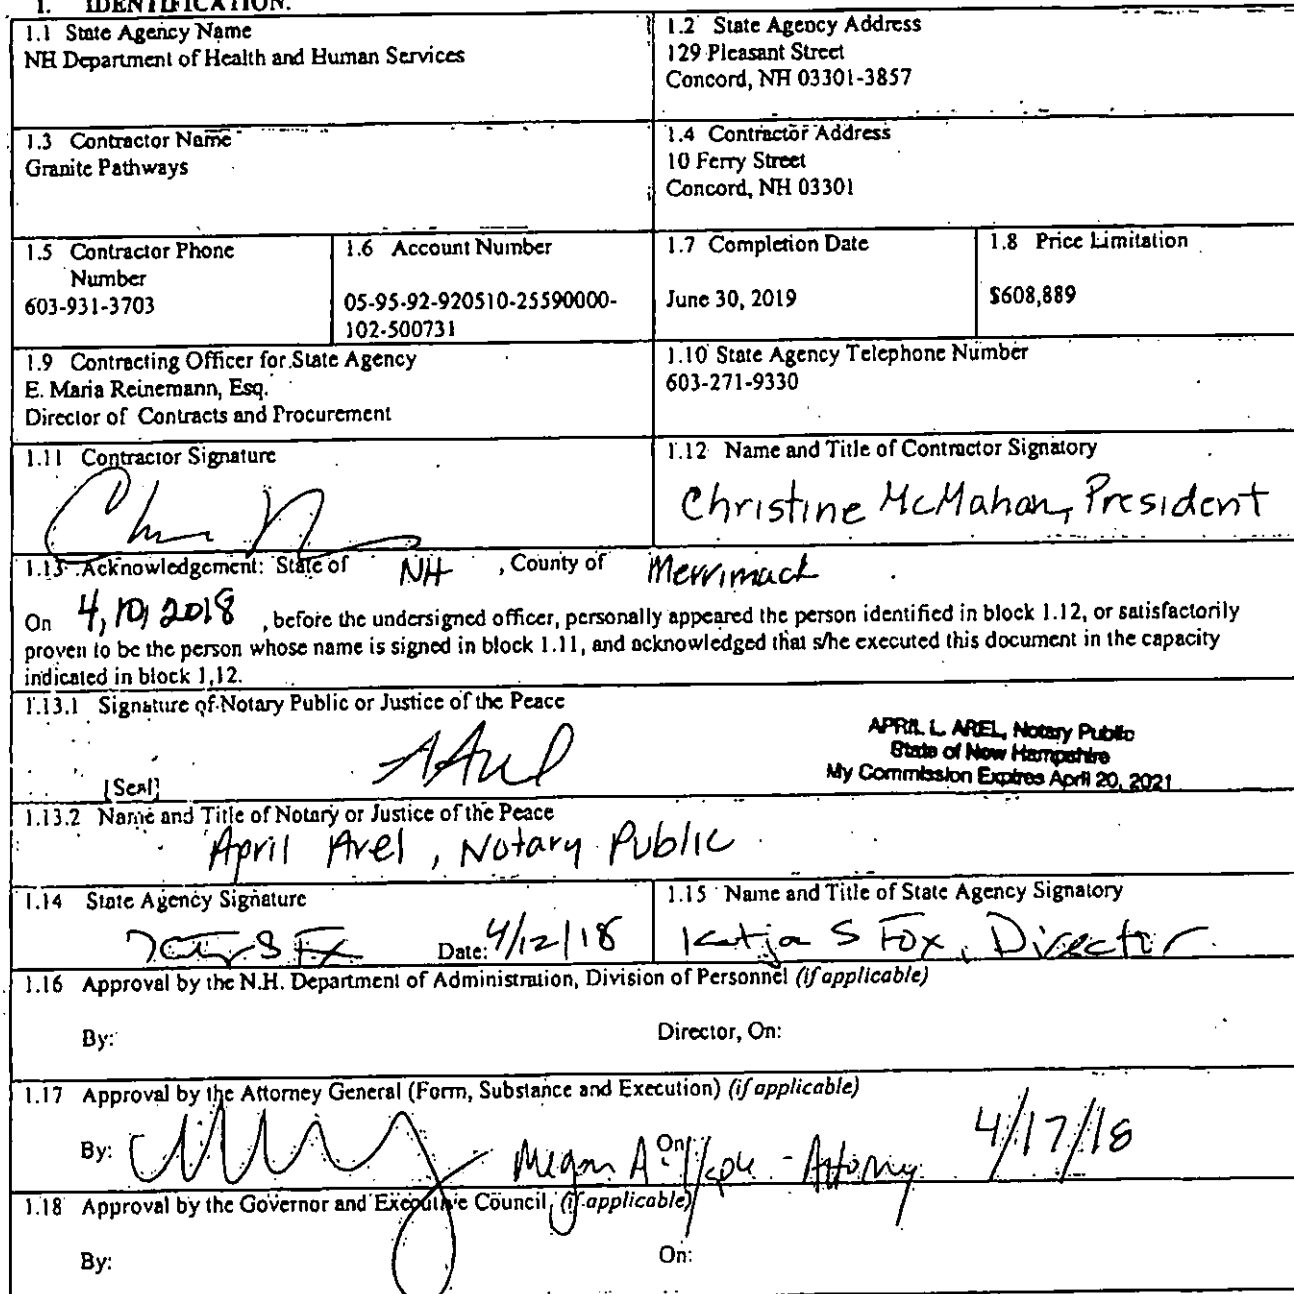 1. IDENTIFICATION.
1.1 State Agency Name
NH Department of Health and Human Services
1.2 State Agency Address
129 Pleasant Street
Concord, NH 03301-3857
1.3 Contractor Name
Granite Pathways
1.4 Contractor Address
10 Ferry Street
Concord, NH 03301
1.5 Contractor Phone
Number
603-931-3703
1.6 Account Number
05-95-92-920510-25590000-
102-500731
1.7 Completion Date
June 30, 2019
1.8 Price Limitation
$608,889
1.9 Contracting Officer for State Agency
E. Maria Reinemann, Esq.
Director of Contracts and Procurement
1.10 State Agency Telephone Number
603-271-9330
1.11 Contractor Signature
1.12 Name and Title of Contractor Signatory
Christine McMahon, President
1.13 Acknowledgement: State of NH , County of Merrimack
On 4, 10, 2018 , before the undersigned officer, personally appeared the person identified in block 1.12, or satisfactorily
proven to be the person whose name is signed in block 1.11, and acknowledged that s/he executed this document in the capacity
indicated in block 1.12.
1.13.1 Signature of Notary Public or Justice of the Peace
[Seal]
A Arel
APRIL L. AREL, Notary Public
State of New Hampshire
My Commission Expires April 20, 2021
1.13.2 Name and Title of Notary or Justice of the Peace
April Arel, Notary Public
1.14 State Agency Signature
Date: 4/12/18
1.15 Name and Title of State Agency Signatory
Katja S Fox, Director
1.16 Approval by the N.H. Department of Administration, Division of Personnel (if applicable)
By:
Director, On:
1.17 Approval by the Attorney General (Form, Substance and Execution) (if applicable)
By: Megan A. On: - Attorney 4/17/18
1.18 Approval by the Governor and Executive Council (if applicable)
By:
On: